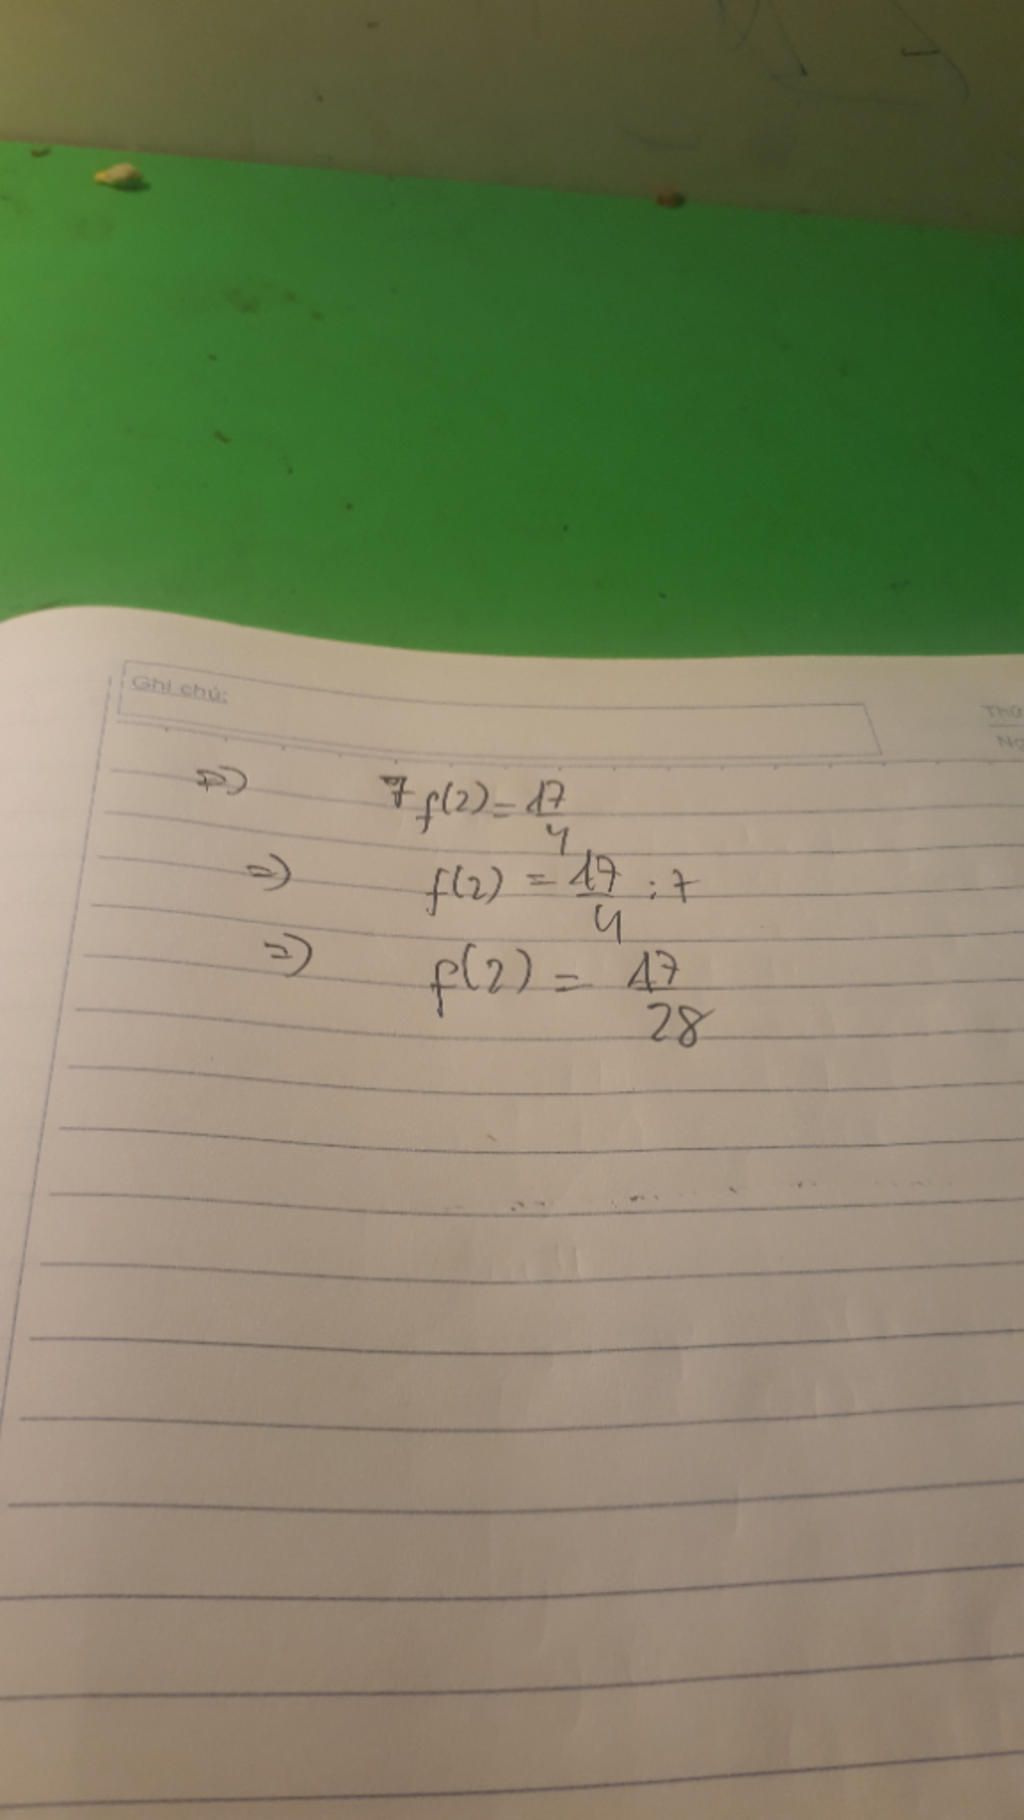 Ghi chú:
Thứ
=> 7 f(2) = 17/4
=> f(2) = 17/4 : 7
=> f(2) = 17/28